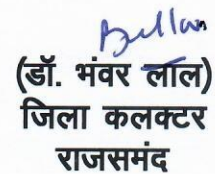 (डॉ. भंवर लाल)
जिला कलक्टर
राजसमंद